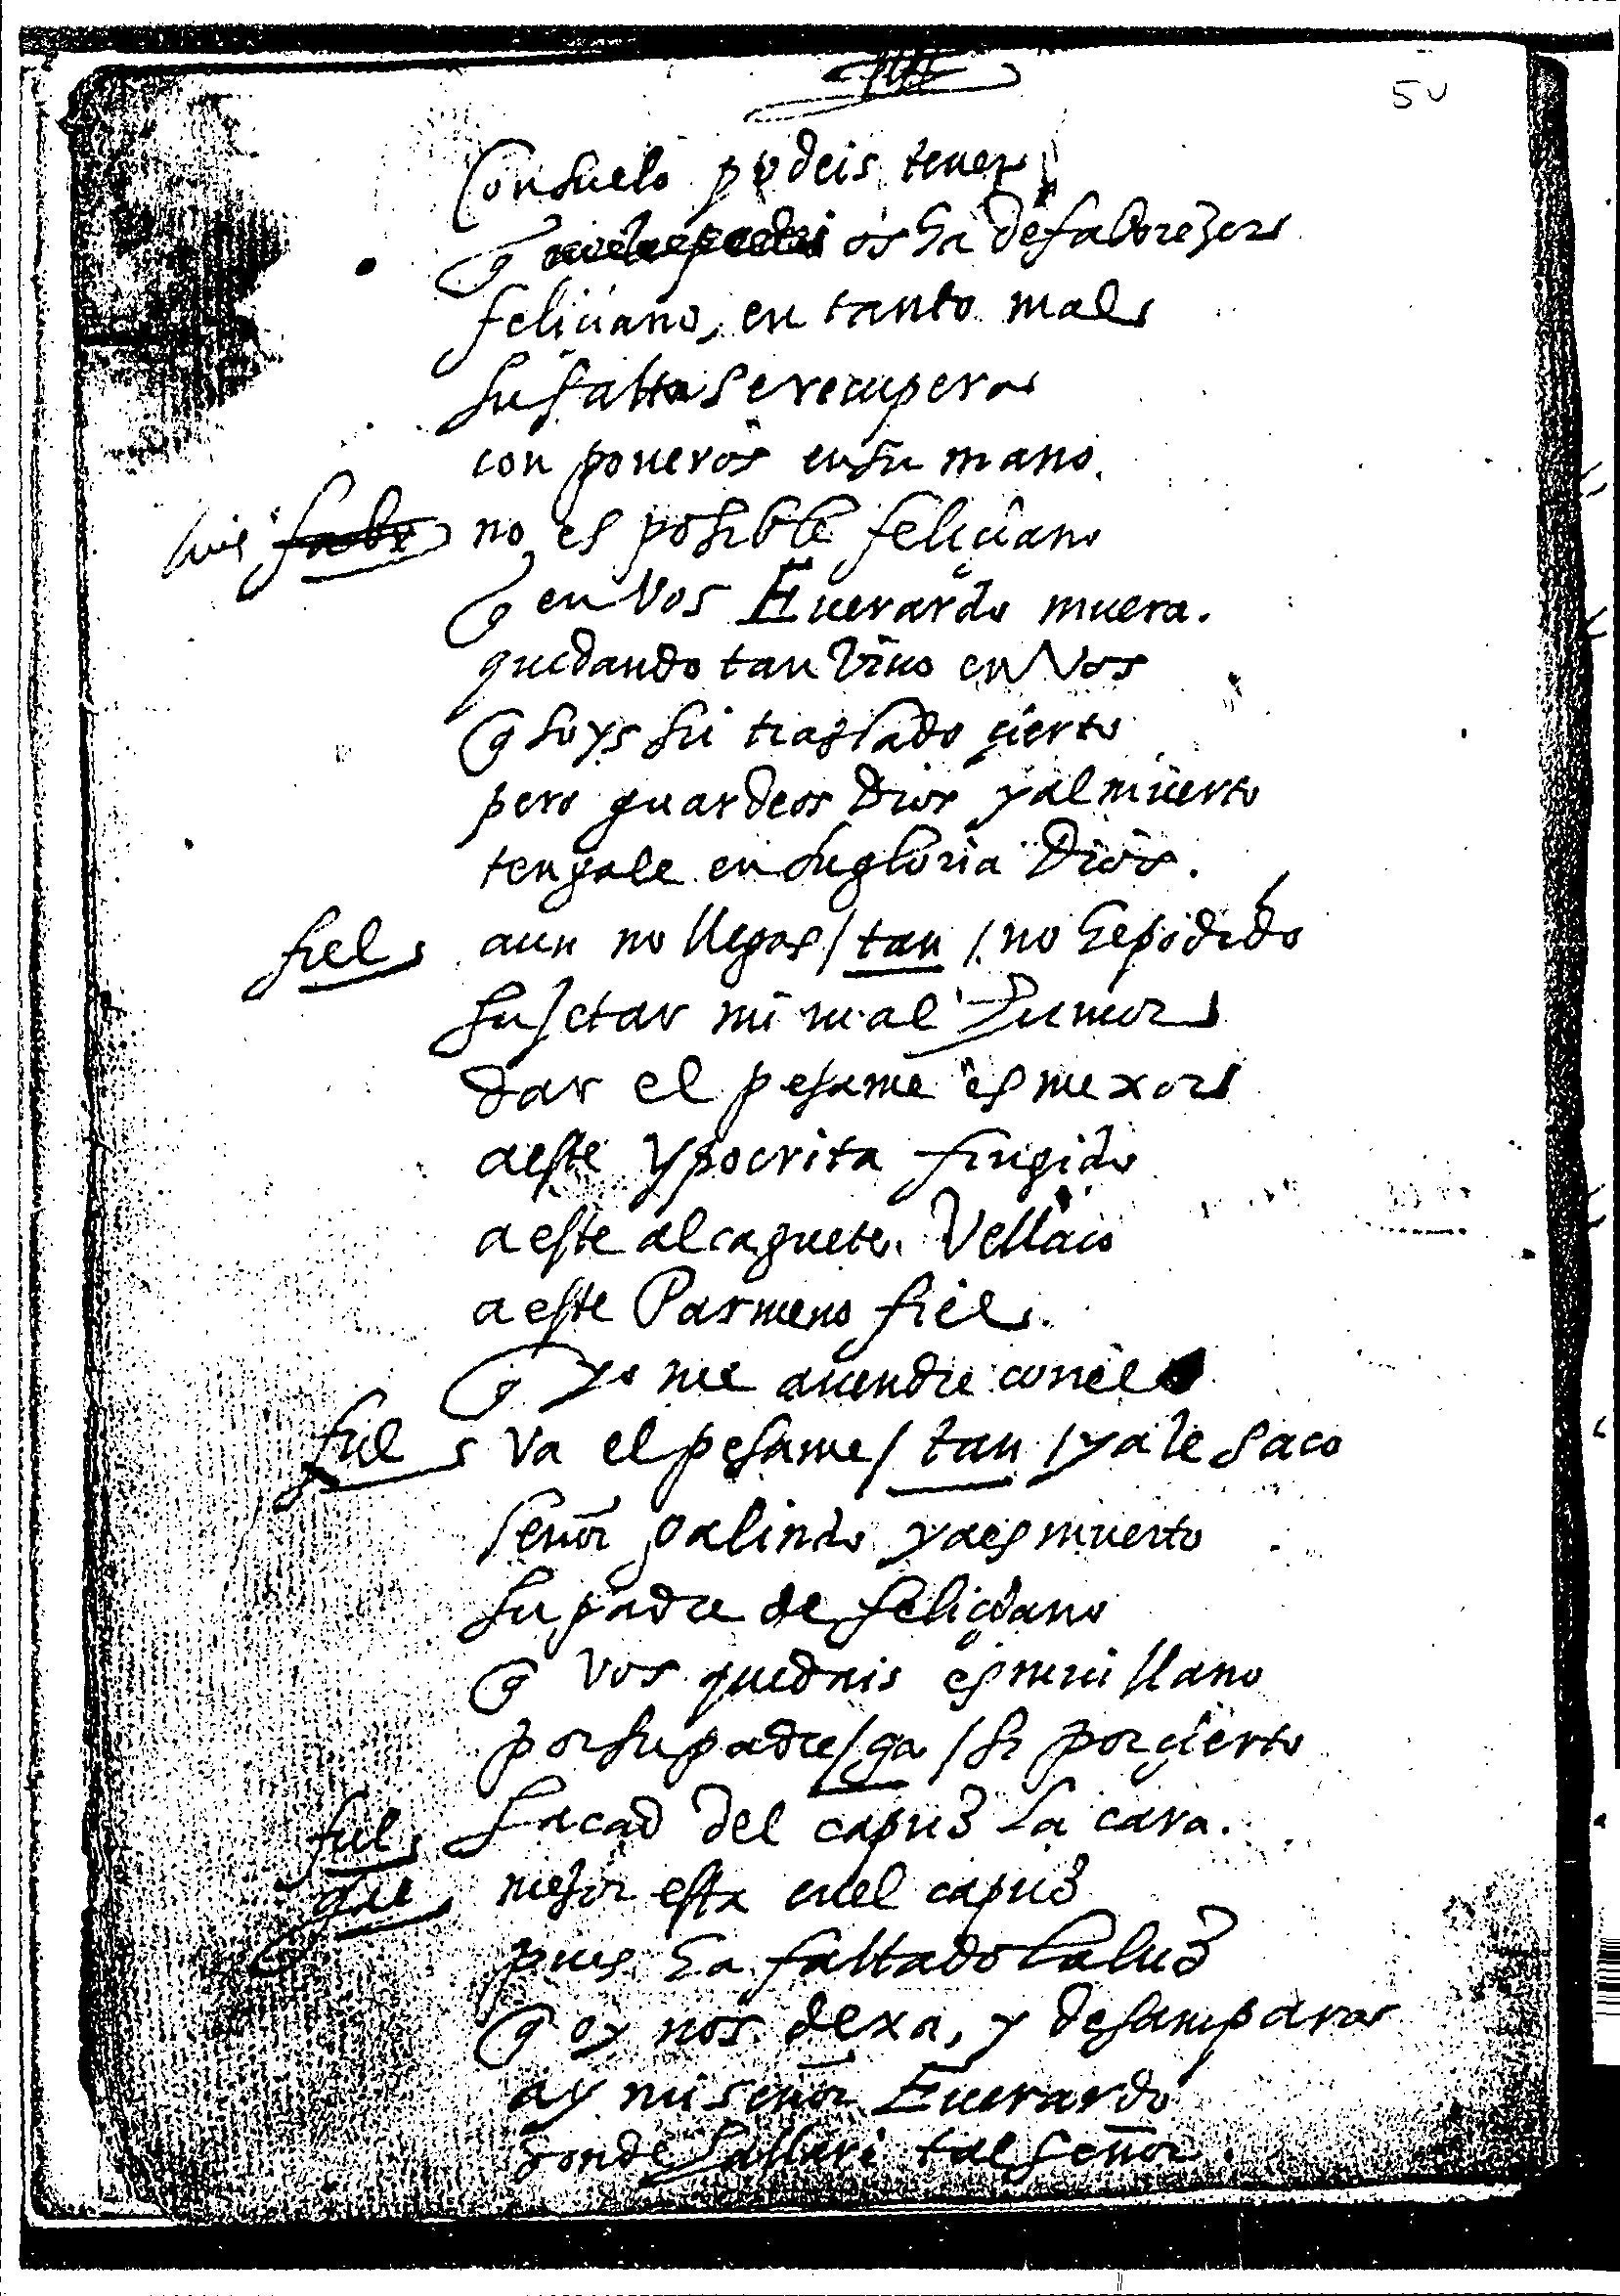 5v
Consuelo podeis tener
q os ha de faborezer
feliciano, en tanto mal
su falta se recupera
con poneros en su mano.
luis fabr no es posible feliciano
q en vos Euerardo muera.
quedando tan viuo en vos
q soys su traslado cierto
pero guardeos Dios y al muerto
tengale en su gloria Dios.
fiel aun no llegas / tan / no he podido
sujetar mi mal humor
dar el pesame es mexor
a este ypocrita fingido
a este alcaguete. Vellaco
a este Parmeno fiel.
q yo me auendre con el
ful va el pesame / tan / ya le saco
señor galindo ya es muerto
su padre de feliciano
q vos quedais es mui llano
por su padre / ga / si por cierto
ful sacad del capuz la cara.
gal mejor esta en el capuz
pues ha faltado la luz
q oy nos dexa, y desampara
ay mi señor Euerardo
donde hallare tal señor.